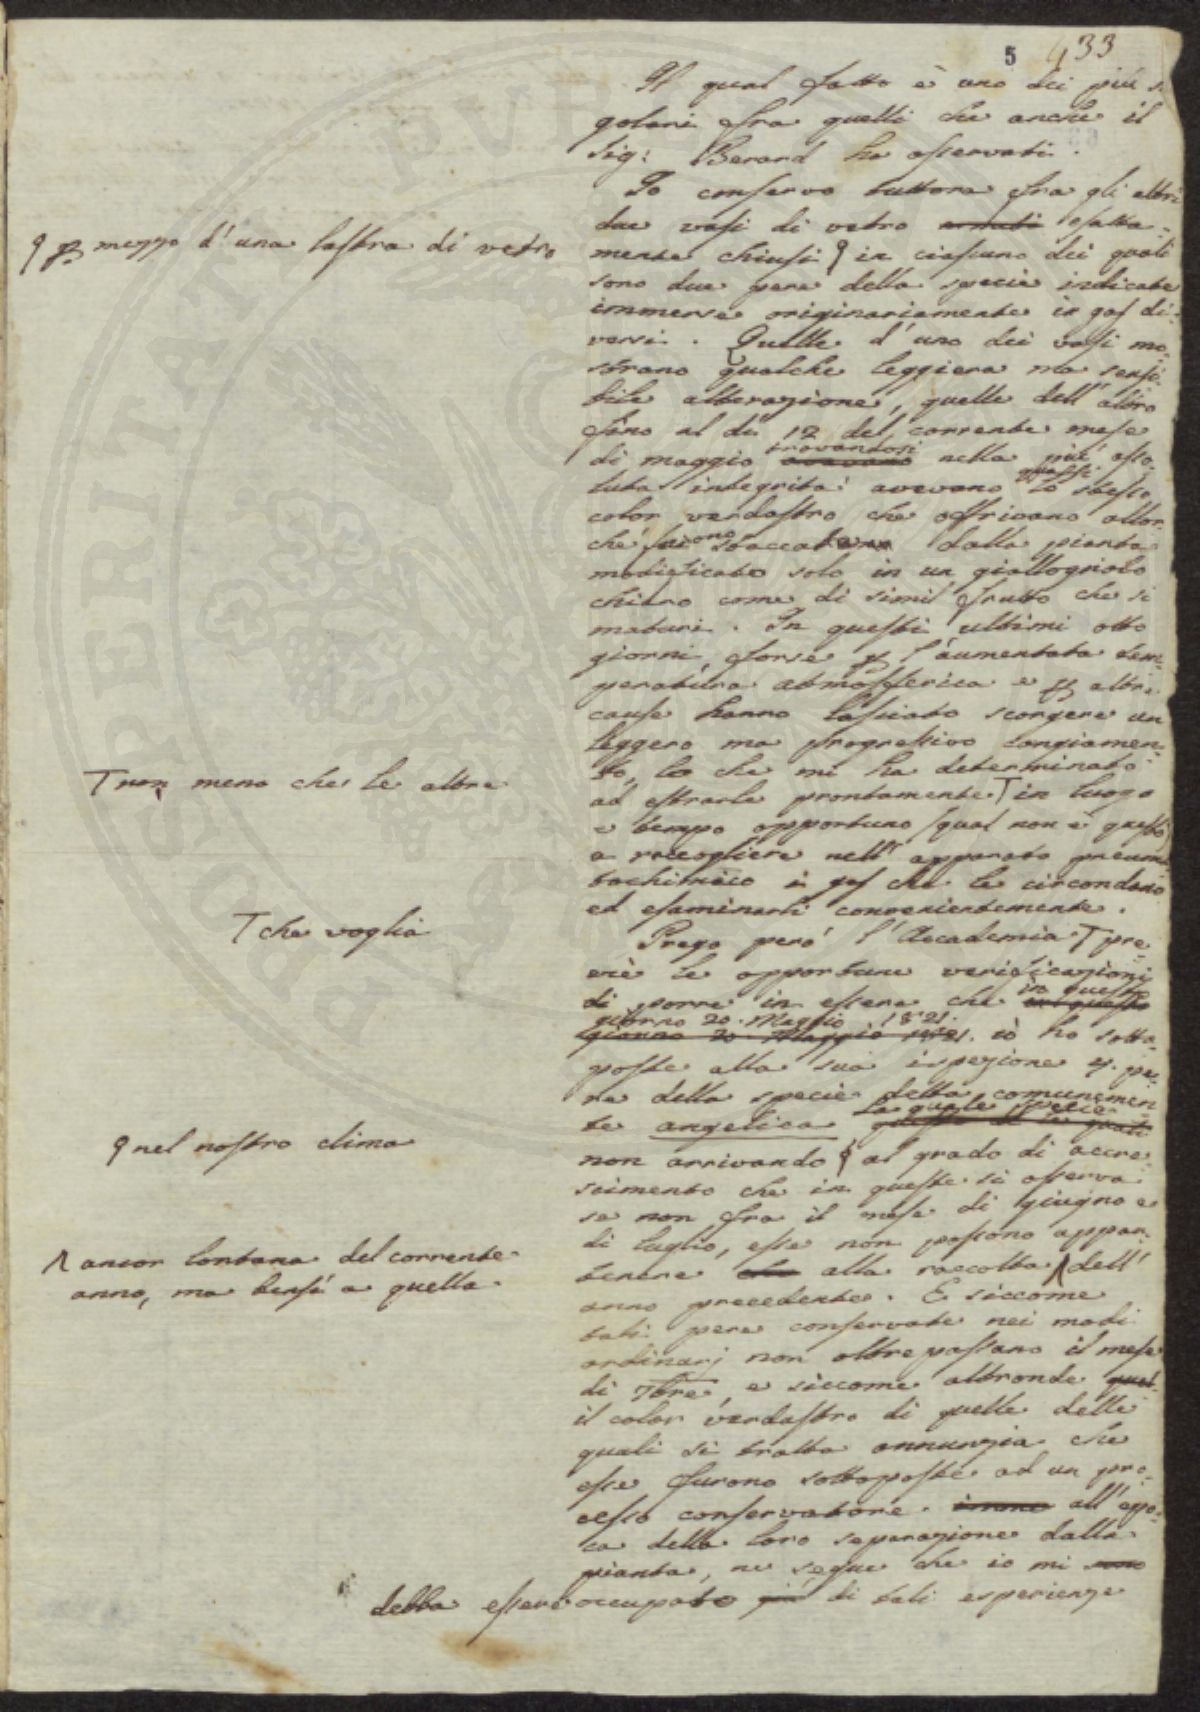 5 433
Il qual fatto è uno dei più si
golari fra quelli che anche il
Sig: Berard ha osservati.
Io conservo tuttora fra gli altri
due vasi di vetro esatta-
mente chiusi in ciascuno dei quali
q p mezzo d'una lastra di vetro
sono due pere della specie indicata
immerse originariamente in gas di-
versi. Quelle d'uno dei vasi mo-
strano qualche leggiera ma sensi-
bile alterazione, quelle dell'altro
fino al dì 12 del corrente mese
di maggio trovandosi nella più asso-
luta integrità avevano quasi lo stesso
color verdastro che offrivano allor
che furono staccate dalla pianta
modificato solo in un giallognolo
chiaro come di simil frutto che si
maturi. In questi ultimi otto
giorni, forse p l'aumentata tem
peratura atmosferica e p altre
cause hanno lasciato scorgere un
leggero ma progressivo cangiamen-
to, lo che mi ha determinato
ad estrarle prontamente T in luogo
T non meno che le altre
e tempo opportuno (qual non è questo
a raccogliere nell'apparato pneuma
tochimico i gas che le circondano
ed esaminarli convenientemente.
Prego però l'Accademia T pre
T che voglia
vie le opportune verificazioni
di porre in essere che in questo
giorno 20. Maggio 1821. io ho sotto-
poste alla sua ispezione 4. pe-
re della specie detta comunemen
te angelica la quale specie
non arrivando q al grado di accre
q nel nostro clima
scimento che in queste si osserva
se non fra il mese di giugno e
di luglio, esse non possono appar-
tenere alla raccolta dell'
Λ ancor lontana del corrente
anno, ma bensì a quella
anno precedente. E siccome
tali pere conservate nei modi
ordinarj non oltrepassano il mese
di 7bre, e siccome altronde quel
il color verdastro di quelle delle
quali si tratta annunzia che
esse furono sottoposte ad un pro-
cesso conservatore all'epo-
ca della loro separazione dalla
pianta, ne segue che io mi sono
debba essere occupato già di tali esperienze